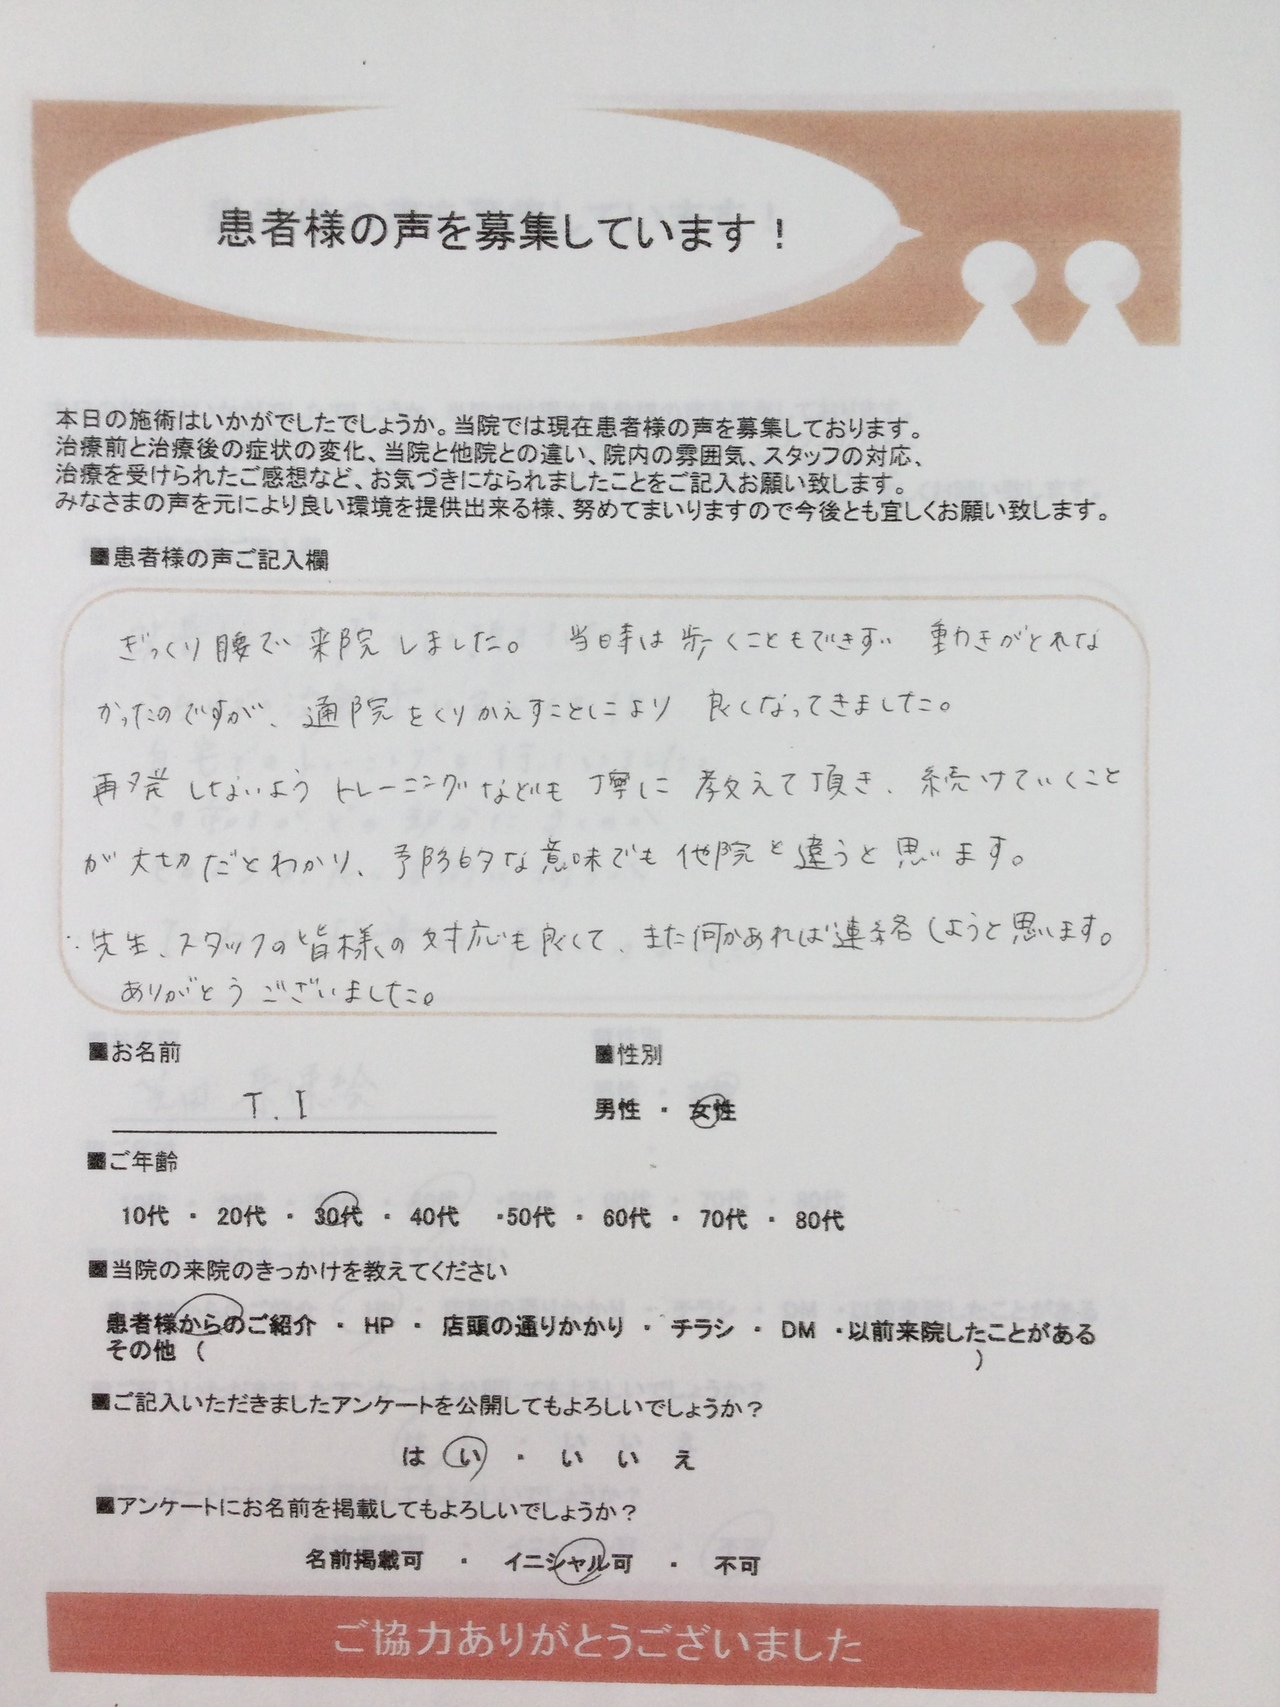 患者様の声を募集しています！
本日の施術はいかがでしたでしょうか。当院では現在患者様の声を募集しております。
治療前と治療後の症状の変化、当院と他院との違い、院内の雰囲気、スタッフの対応、
治療を受けられたご感想など、お気づきになられましたことをご記入お願い致します。
みなさまの声を元により良い環境を提供出来る様、努めてまいりますので今後とも宜しくお願い致します。
■患者様の声ご記入欄
ぎっくり腰で来院しました。当時は歩くこともできず動きがとれな
かったのですが、通院をくりかえすことにより良くなってきました。
再発しないようトレーニングなども丁寧に教えて頂き、続けていくこと
が大切だとわかり、予防的な意味でも他院と違うと思います。
先生、スタッフの皆様の対応も良くて、また何かあれば連絡しようと思います。
ありがとうございました。
■お名前 ■性別
T.I 男性 ・ 女性
■ご年齢
10代 ・ 20代 ・ 30代 ・ 40代 ・50代 ・ 60代 ・ 70代 ・ 80代
■当院の来院のきっかけを教えてください
患者様からのご紹介 ・ HP ・ 店頭の通りかかり ・ チラシ ・ DM ・以前来院したことがある
その他（ ）
■ご記入いただきましたアンケートを公開してもよろしいでしょうか？
はい ・ いいえ
■アンケートにお名前を掲載してもよろしいでしょうか？
名前掲載可 ・ イニシャル可 ・ 不可
ご協力ありがとうございました